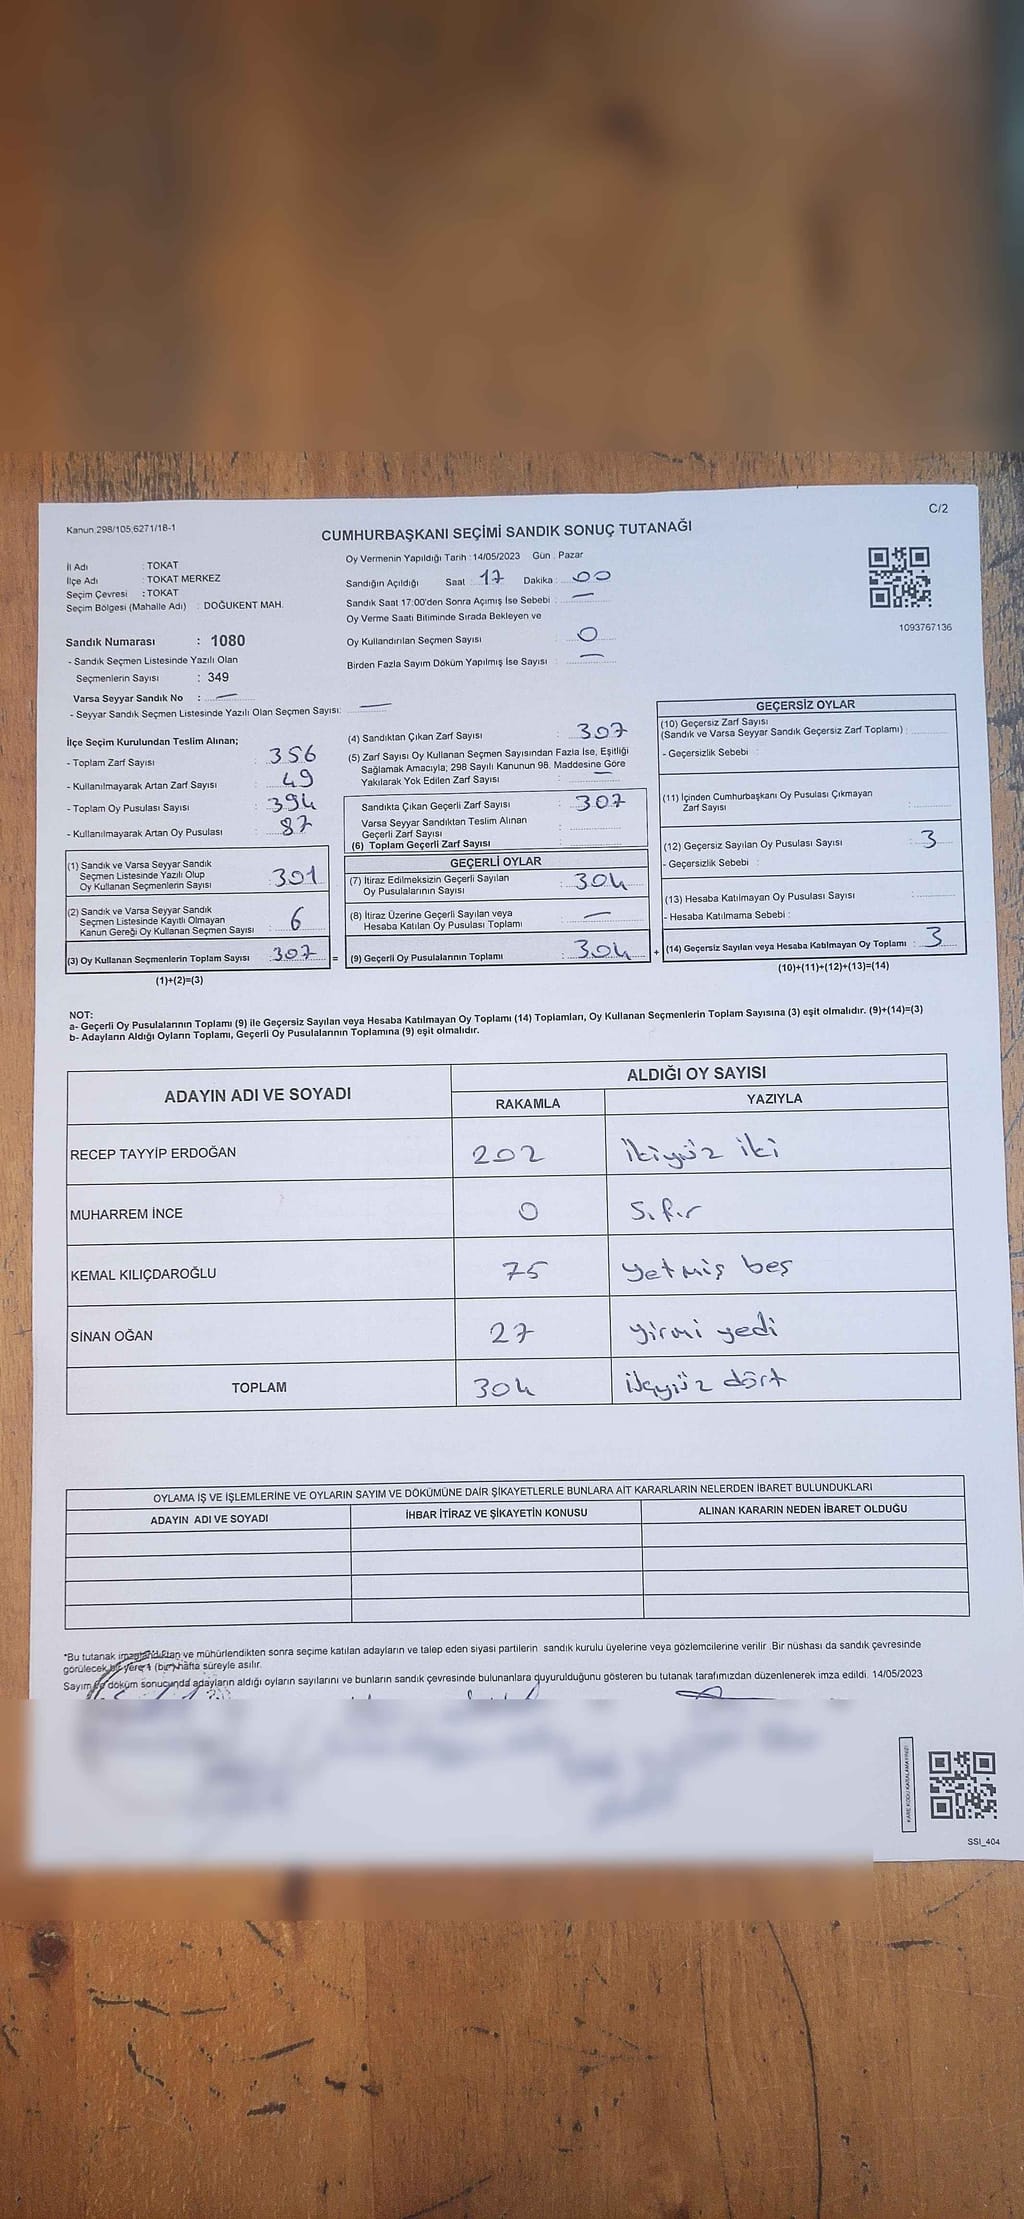 C/2
Kanun 298/105 6271/18-1
CUMHURBAŞKANI SEÇİMİ SANDIK SONUÇ TUTANAĞI
İl Adı : TOKAT
İlçe Adı : TOKAT MERKEZ
Seçim Çevresi : TOKAT
Seçim Bölgesi (Mahalle Adı) : DOĞUKENT MAH.
Sandık Numarası : 1080
- Sandık Seçmen Listesinde Yazılı Olan
Seçmenlerin Sayısı : 349
Varsa Seyyar Sandık No : —
- Seyyar Sandık Seçmen Listesinde Yazılı Olan Seçmen Sayısı: —
Oy Vermenin Yapıldığı Tarih : 14/05/2023 Gün : Pazar
Sandığın Açıldığı Saat : 17 Dakika : 00
Sandık Saat 17:00'den Sonra Açımış İse Sebebi : —
Oy Verme Saati Bitiminde Sırada Bekleyen ve
Oy Kullandırılan Seçmen Sayısı : 0
Birden Fazla Sayım Döküm Yapılmış İse Sayısı : —
1093767136
İlçe Seçim Kurulundan Teslim Alınan;
- Toplam Zarf Sayısı : 356
- Kullanılmayarak Artan Zarf Sayısı : 49
- Toplam Oy Pusulası Sayısı : 394
- Kullanılmayarak Artan Oy Pusulası : 87
(1) Sandık ve Varsa Seyyar Sandık
Seçmen Listesinde Yazılı Olup
Oy Kullanan Seçmenlerin Sayısı : 301
(2) Sandık ve Varsa Seyyar Sandık
Seçmen Listesinde Kayıtlı Olmayan
Kanun Gereği Oy Kullanan Seçmen Sayısı : 6
(3) Oy Kullanan Seçmenlerin Toplam Sayısı : 307
(1)+(2)=(3)
=
(4) Sandıktan Çıkan Zarf Sayısı : 307
(5) Zarf Sayısı Oy Kullanan Seçmen Sayısından Fazla İse, Eşitliği
Sağlamak Amacıyla; 298 Sayılı Kanunun 98. Maddesine Göre
Yakılarak Yok Edilen Zarf Sayısı : —
Sandıkta Çıkan Geçerli Zarf Sayısı : 307
Varsa Seyyar Sandıktan Teslim Alınan
Geçerli Zarf Sayısı :
(6) Toplam Geçerli Zarf Sayısı :
GEÇERLİ OYLAR
(7) İtiraz Edilmeksizin Geçerli Sayılan
Oy Pusulalarının Sayısı : 304
(8) İtiraz Üzerine Geçerli Sayılan veya
Hesaba Katılan Oy Pusulası Toplamı : —
(9) Geçerli Oy Pusulalarının Toplamı : 304
+
GEÇERSİZ OYLAR
(10) Geçersiz Zarf Sayısı
(Sandık ve Varsa Seyyar Sandık Geçersiz Zarf Toplamı) :
- Geçersizlik Sebebi :
(11) İçinden Cumhurbaşkanı Oy Pusulası Çıkmayan
Zarf Sayısı :
(12) Geçersiz Sayılan Oy Pusulası Sayısı : 3
- Geçersizlik Sebebi :
(13) Hesaba Katılmayan Oy Pusulası Sayısı :
- Hesaba Katılmama Sebebi :
(14) Geçersiz Sayılan veya Hesaba Katılmayan Oy Toplamı : 3
(10)+(11)+(12)+(13)=(14)
NOT:
a- Geçerli Oy Pusulalarının Toplamı (9) ile Geçersiz Sayılan veya Hesaba Katılmayan Oy Toplamı (14) Toplamları, Oy Kullanan Seçmenlerin Toplam Sayısına (3) eşit olmalıdır. (9)+(14)=(3)
b- Adayların Aldığı Oyların Toplamı, Geçerli Oy Pusulalarının Toplamına (9) eşit olmalıdır.
ADAYIN ADI VE SOYADI ALDIĞI OY SAYISI
RAKAMLA YAZIYLA
RECEP TAYYİP ERDOĞAN 202 ikiyüz iki
MUHARREM İNCE 0 Sıfır
KEMAL KILIÇDAROĞLU 75 yetmiş beş
SİNAN OĞAN 27 yirmi yedi
TOPLAM 304 üçyüz dört
OYLAMA İŞ VE İŞLEMLERİNE VE OYLARIN SAYIM VE DÖKÜMÜNE DAİR ŞİKAYETLERLE BUNLARA AİT KARARLARIN NELERDEN İBARET BULUNDUKLARI
ADAYIN ADI VE SOYADI İHBAR İTİRAZ VE ŞİKAYETİN KONUSU ALINAN KARARIN NEDEN İBARET OLDUĞU
*Bu tutanak imzalandıktan ve mühürlendikten sonra seçime katılan adayların ve talep eden siyasi partilerin sandık kurulu üyelerine veya gözlemcilerine verilir. Bir nüshası da sandık çevresinde
görülecek bir yere 1 (bir) hafta süreyle asılır.
Sayım ve döküm sonucunda adayların aldığı oyların sayılarını ve bunların sandık çevresinde bulunanlara duyurulduğunu gösteren bu tutanak tarafımızdan düzenlenerek imza edildi. 14/05/2023
KARE KODU KARALAMAYINIZ!
SSI_404